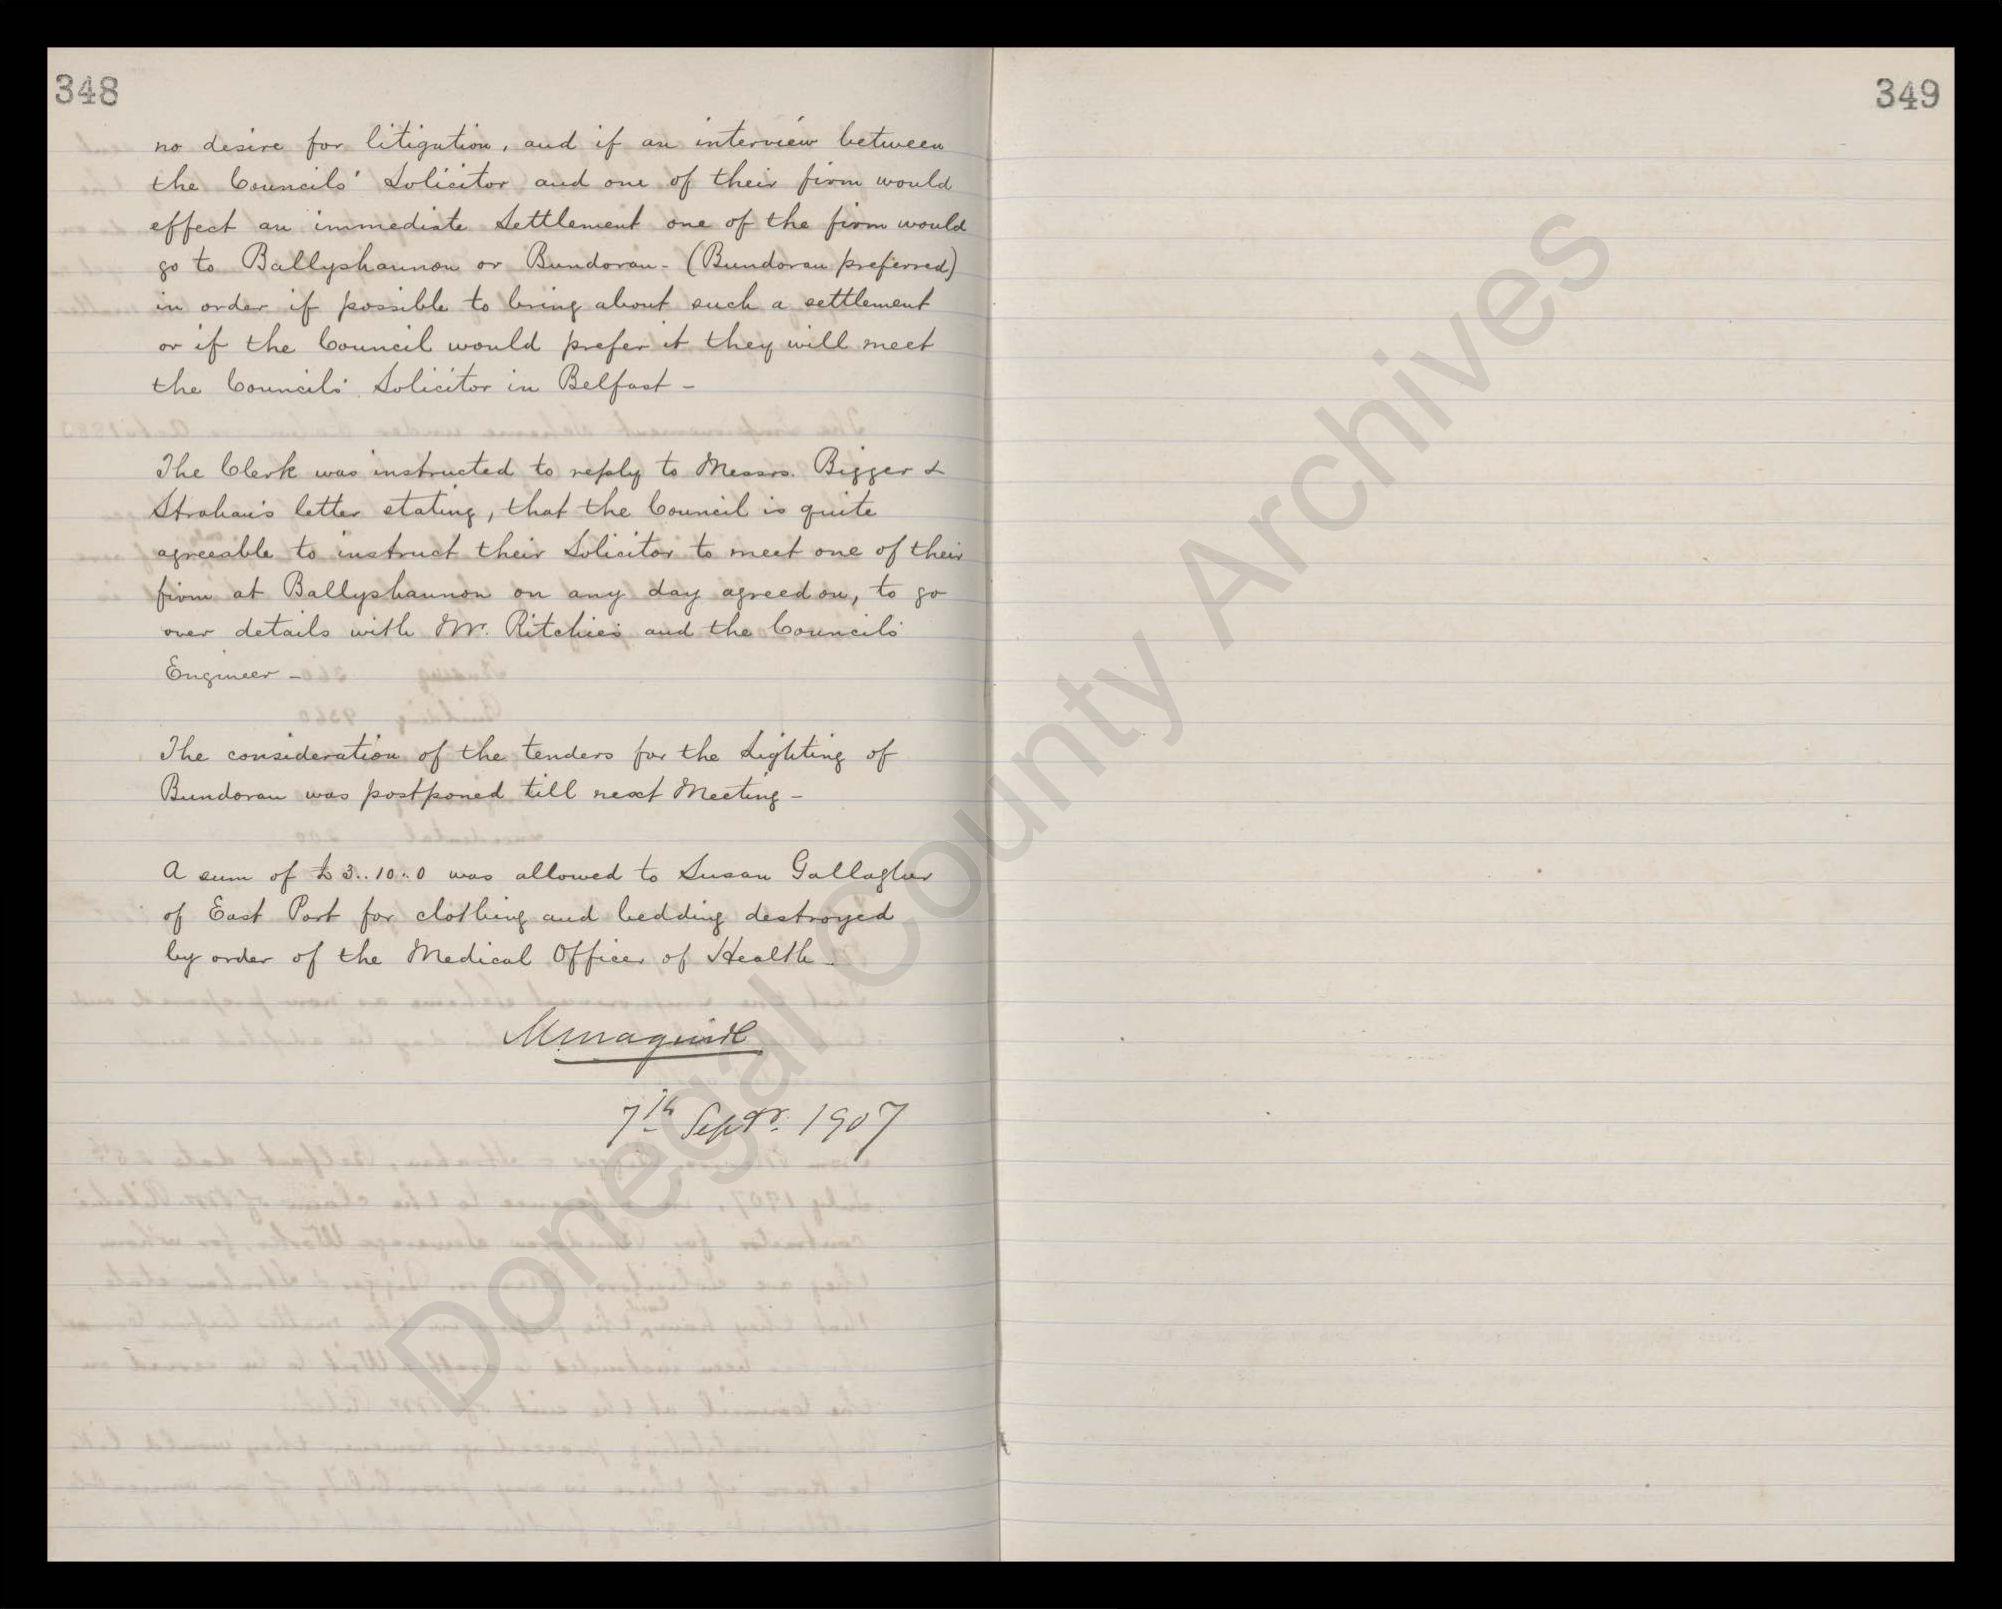 348
no desire for litigation, and if an interview between
the Councils' Solicitor and one of their firm would
effect an immediate Settlement one of the firm would
go to Ballyshannon or Bundoran - (Bundoran preferred)
in order if possible to bring about such a settlement
or if the Council would prefer it they will meet
the Councils' Solicitor in Belfast -
The Clerk was instructed to reply to Messrs. Bigger &
Strahan's letter stating, that the Council is quite
agreeable to instruct their Solicitor to meet one of their
firm at Ballyshannon on any day agreed on, to go
over details with Mr. Ritchies and the Councils'
Engineer -
The consideration of the tenders for the Lighting of
Bundoran was postponed till next Meeting -
A sum of £3..10..0 was allowed to Susan Gallagher
of East Port for clothing and bedding destroyed
by order of the Medical Officer of Health -
7th Septr. 1907
349
Donegal County Archives